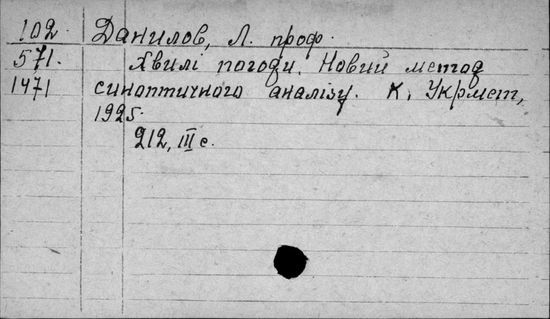 102. Данилов, Л. проф.
571. Хвилі погоди. Новий метод
1471 синоптичного аналізу. К, Укрмет,
1925.
212, III с.